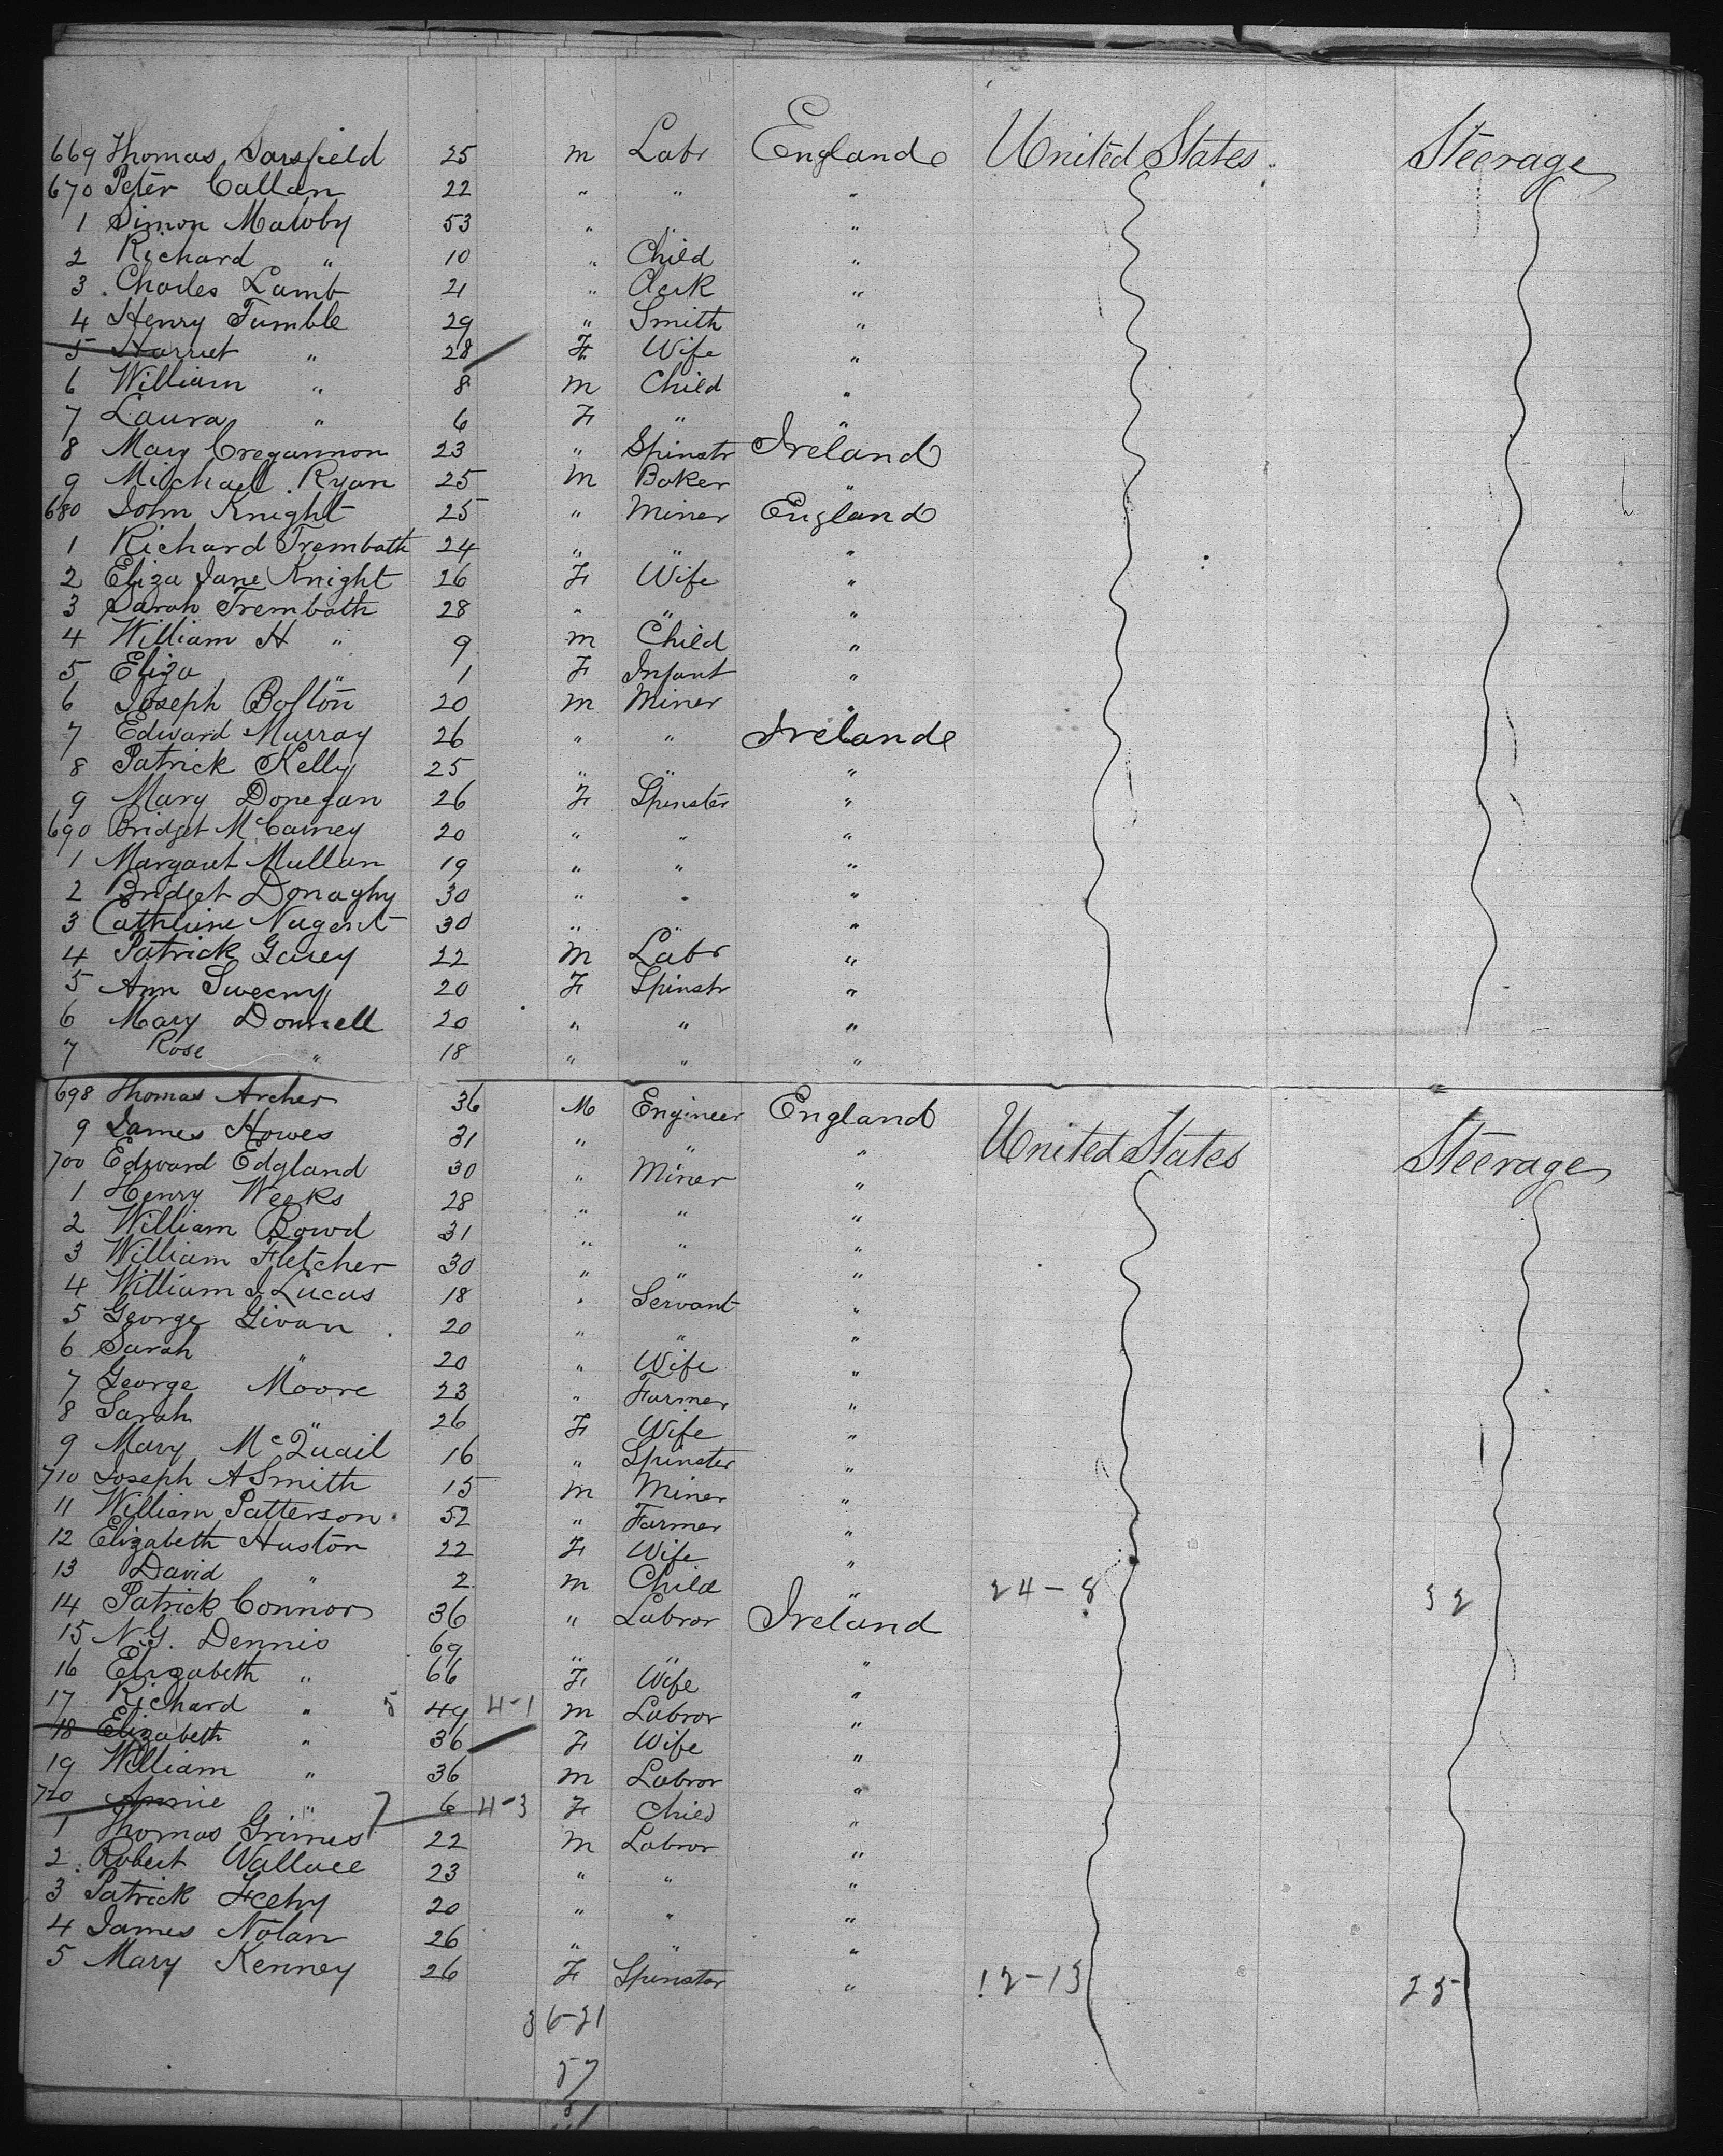 669 Thomas Sarsfield 25 m Labr England United States Steerage
670 Peter Callan 22 " " "
1 Simon Mawby 53 " " "
2 Richard " 10 " Child "
3 Charles Lamb 21 " Clerk "
4 Henry Tumble 29 " Smith "
5 Harriet " 28 F Wife "
6 William " 8 m Child "
7 Laura " 6 F " "
8 Mary Cregannon 23 " Spinstr Ireland
9 Michael Ryan 25 m Baker "
680 John Knight 25 " Miner England
1 Richard Trembath 24 " " "
2 Eliza Jane Knight 26 F Wife "
3 Sarah Trembath 28 " " "
4 William H " 9 m Child "
5 Eliza " 1 F Infant "
6 Joseph Bolton 20 m Miner "
7 Edward Murray 26 " " Ireland
8 Patrick Kelly 25 " " "
9 Mary Donegan 26 F Spinster "
690 Bridget McCamey 20 " " "
1 Margaret Mullan 19 " " "
2 Bridget Donaghy 30 " " "
3 Catherine Nugent 30 " " "
4 Patrick Garey 22 m Labr "
5 Ann Sweeny 20 F Spinstr "
6 Mary Donnell 20 " " "
7 Rose " 18 " " "
698 Thomas Archer 36 M Engineer England United States Steerage
9 James Howes 31 " " "
700 Edward Edgland 30 " Miner "
1 Henry Weeks 28 " " "
2 William Bowd 31 " " "
3 William Fletcher 30 " " "
4 William J Lucas 18 " Servant "
5 George Givan 20 " " "
6 Sarah " 20 " Wife "
7 George Moore 23 " Farmer "
8 Sarah " 26 F Wife "
9 Mary McQuail 16 " Spinster "
710 Joseph A Smith 15 m Miner "
11 William Patterson 52 " Farmer "
12 Elizabeth Huston 22 F Wife "
13 David " 2 m Child " 24-8 32
14 Patrick Connors 36 " Labror Ireland
15 N.G. Dennis 69 " " "
16 Elizabeth " 66 F Wife "
17 Richard " 5 49 4-1 m Labror "
18 Elizabeth " 36 F Wife "
19 William " 36 m Labror "
720 Annie " 7 6 4-3 F Child "
1 Thomas Grimes 22 m Labror "
2 Robert Wallace 23 " " "
3 Patrick Feehy 20 " " "
4 James Nolan 26 " " "
5 Mary Kenney 26 F Spinster " 12-13 25
36-21
57